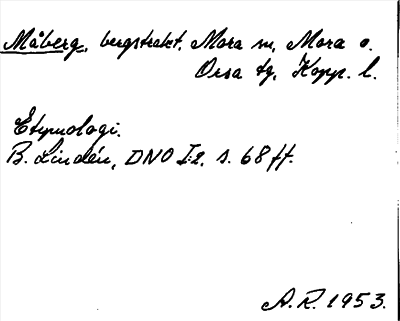 Måberg, bergstrakt, Mora sn, Mora o.
Orsa tg, Kopp. l.
Etymologi.
B. Lindén, DNO I:2, s. 68 ff.
A.R. 1953.